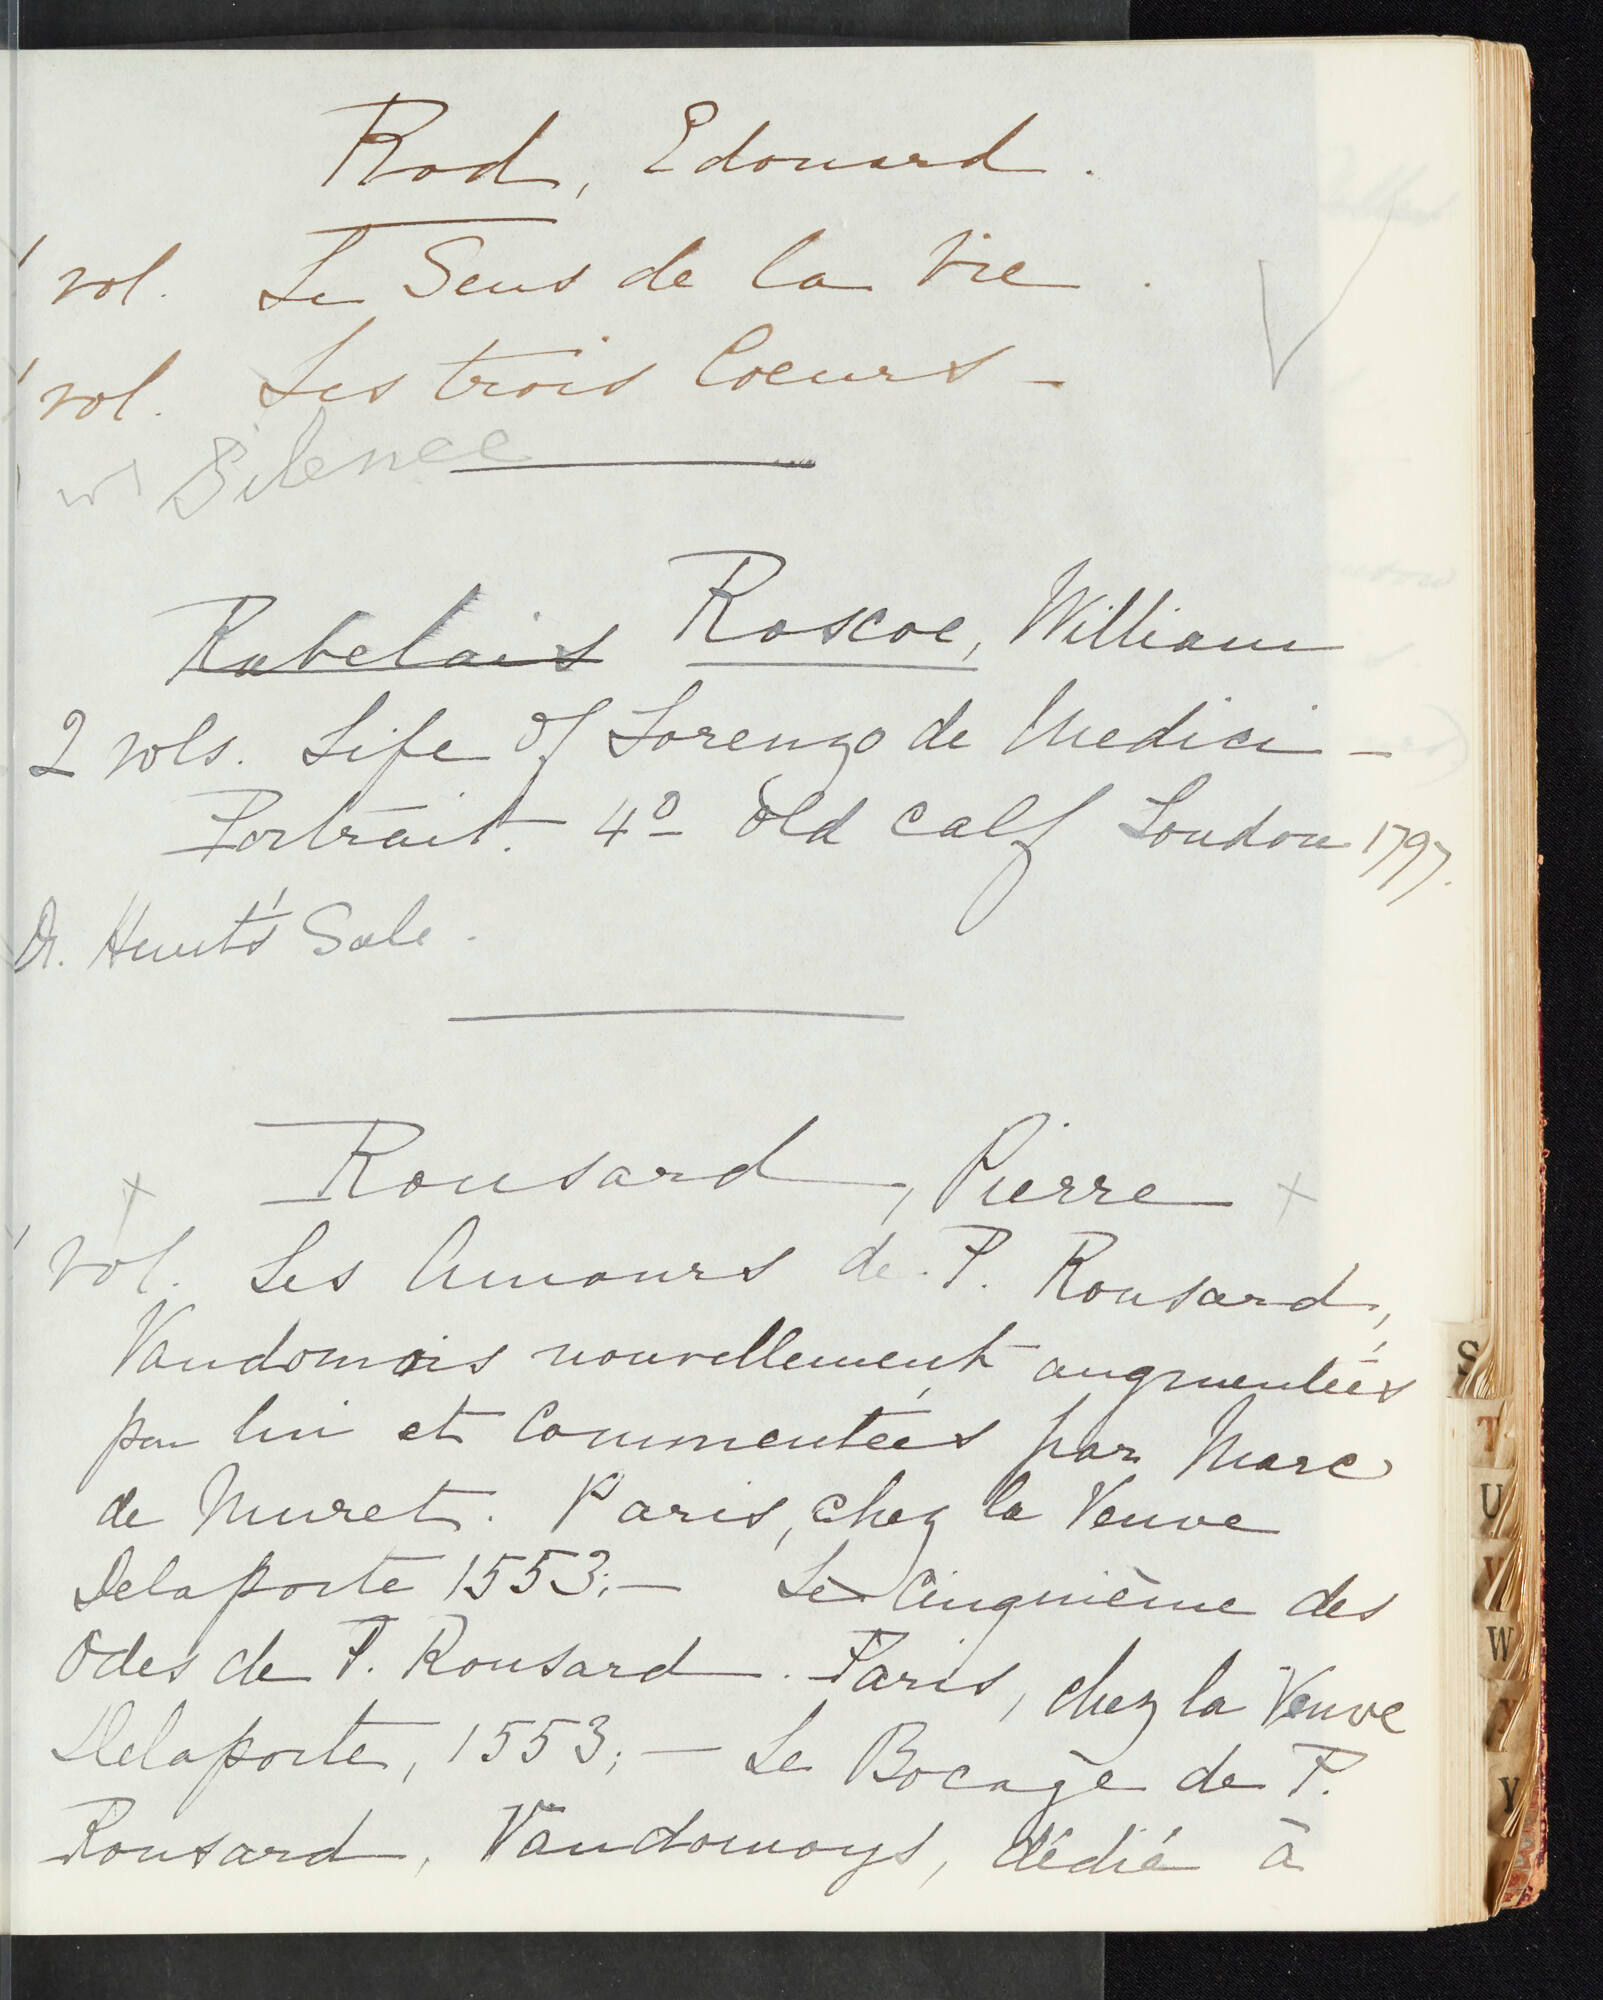 Rod, Edouard.
1 vol. Le Sens de la Vie.
1 vol. Les trois Coeurs -
Silence
Rabelais Roscoe, William
2 vols. Life of Lorenzo de Medici -
Portrait. 4o old calf London 1797.
Dr. Hunt's Sale.
Ronsard, Pierre
1 vol. Les Amours de P. Ronsard,
Vandomois nouvellement augmentées
par lui et Commentées par Marc
de Muret. Paris, chez la Veuve
Delaporte 1553; - Le Cinquième des
Odes de P. Ronsard. Paris, chez la Veuve
Delaporte, 1553; - Le Bocage de P.
Ronsard, Vandomoys, dédié à
S
T
U
V
W
Y